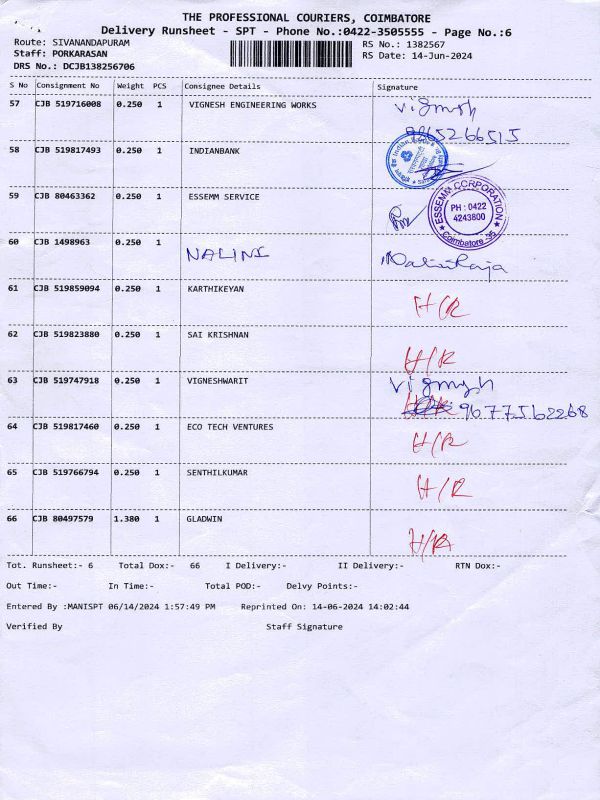 THE PROFESSIONAL COURIERS, COIMBATORE
Delivery Runsheet - SPT - Phone No.:0422-3505555 - Page No.:6
Route: SIVANANDAPURAM RS No.: 1382567
Staff: PORKARASAN RS Date: 14-Jun-2024
DRS No.: DCJB138256706
S No Consignment No Weight PCS Consignee Details Signature
57 CJB 519716008 0.250 1 VIGNESH ENGINEERING WORKS Vignesh
9865266515
58 CJB 519817493 0.250 1 INDIANBANK
59 CJB 80463362 0.250 1 ESSEMM SERVICE
ESSEMM CORPORATION
PH : 0422
4243800
Coimbatore-35
60 CJB 1498963 0.250 1 NALINI
61 CJB 519859094 0.250 1 KARTHIKEYAN H/R
62 CJB 519823880 0.250 1 SAI KRISHNAN H/R
63 CJB 519747918 0.250 1 VIGNESHWARIT Vignesh
9677562268
64 CJB 519817460 0.250 1 ECO TECH VENTURES H/R
65 CJB 519766794 0.250 1 SENTHILKUMAR H/R
66 CJB 80497579 1.380 1 GLADWIN H/R
Tot. Runsheet:- 6 Total Dox:- 66 I Delivery:- II Delivery:- RTN Dox:-
Out Time:- In Time:- Total POD:- Delvy Points:-
Entered By :MANISPT 06/14/2024 1:57:49 PM Reprinted On: 14-06-2024 14:02:44
Verified By Staff Signature